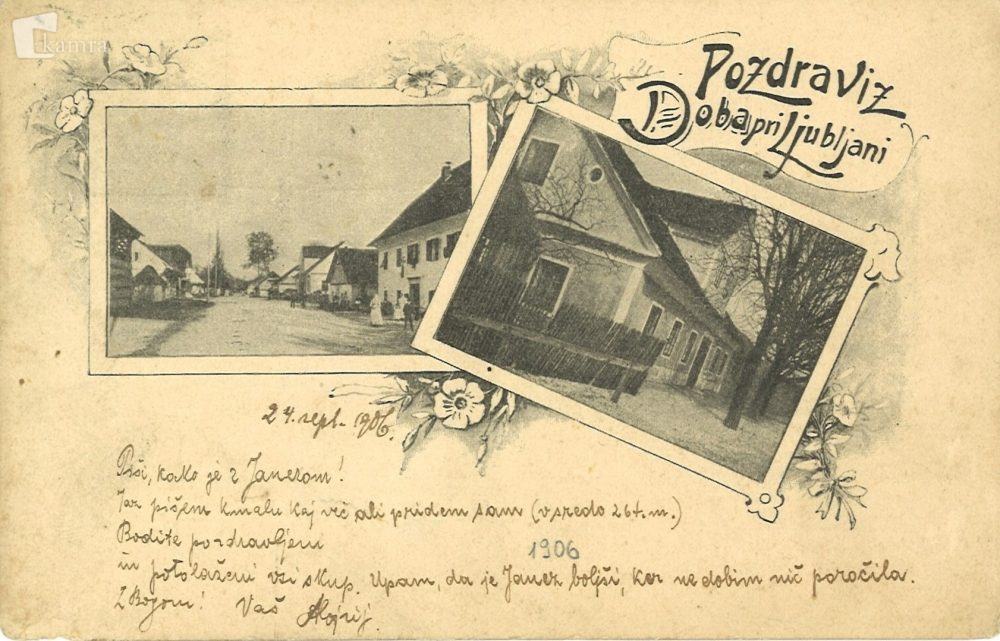 kamra
Pozdrav iz
Doba pri Ljubljani
24. sept. 1906.
Piši, kako je z Janezom!
Jaz pišem kmalu kaj več ali pridem sam (v sredo 26 t. m.)
Bodite pozdravljeni
1906
in potolaženi vsi skup. Upam, da je Janez boljši, ker ne dobim nič poročila.
Z Bogom! Vaš Alojzij